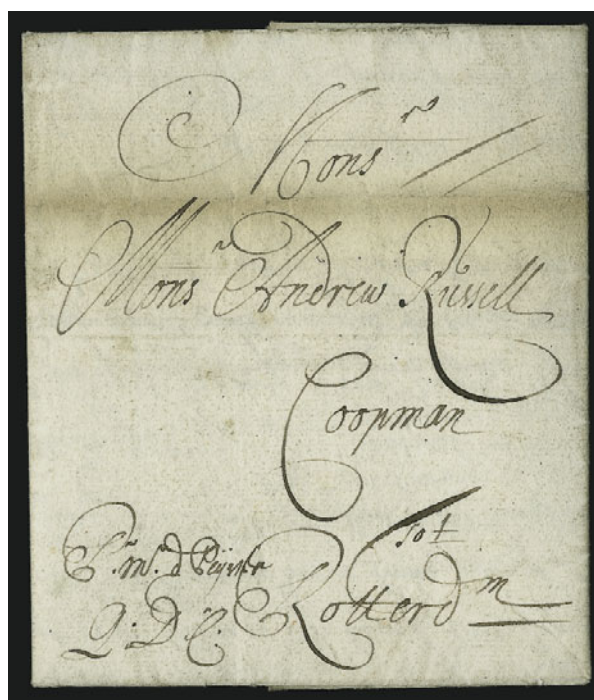 Monsr
Monsr Andrew Russell
Coopman
tot
Rotterdm
Q. D. C.